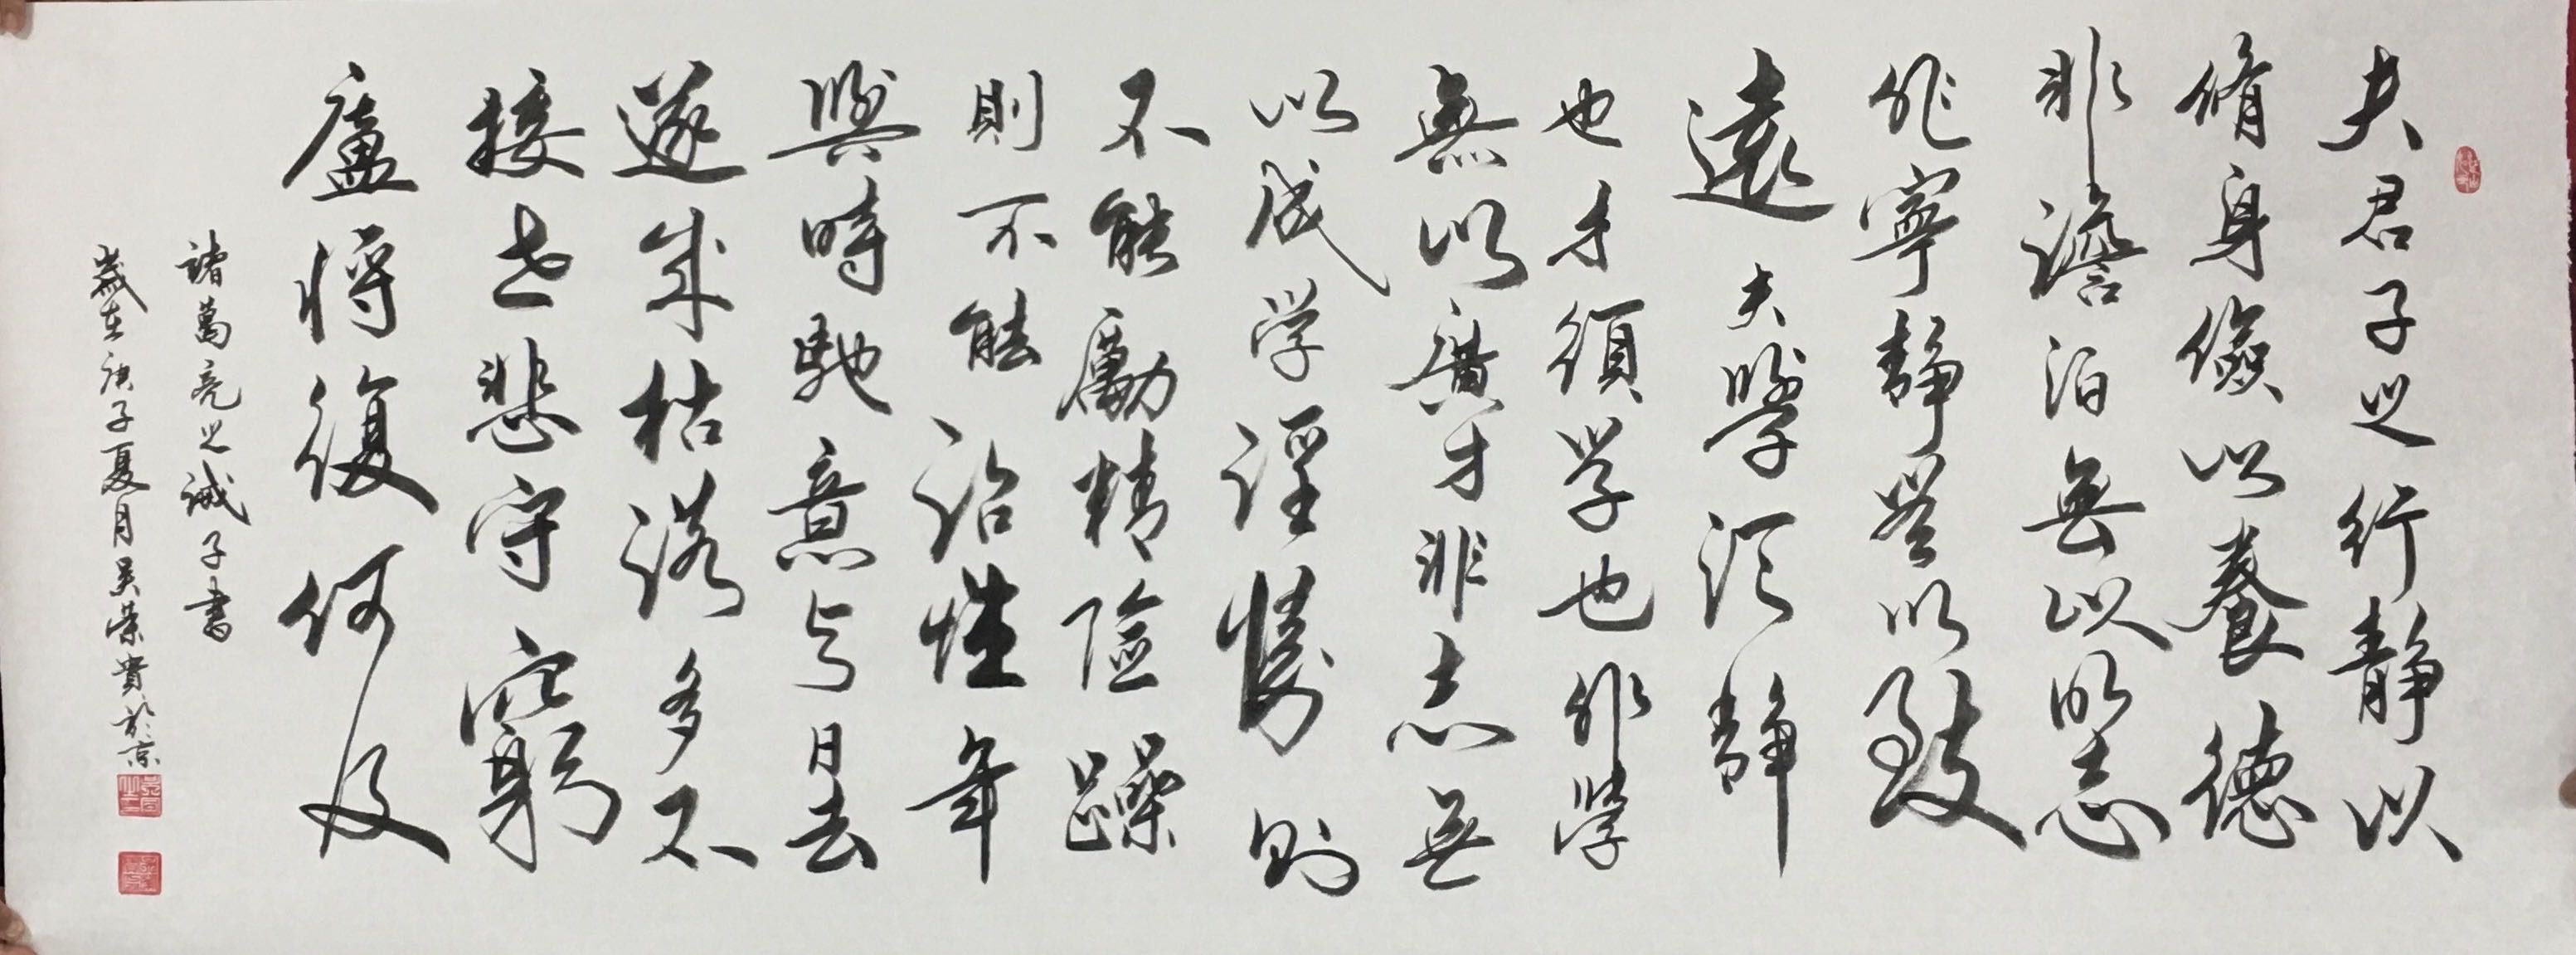 夫君子之行静以
脩身儉以養德
非澹泊無以明志
非寧静無以致
遠夫學須静
也才須学也非學
無以廣才非志無
以成学淫慢則
不能勵精險躁
則不能治性年
與時馳意与日去
遂成枯落多不
接世悲守窮
廬将復何及
諸葛亮之誡子書
歲在庚子夏月吴荣貴於京